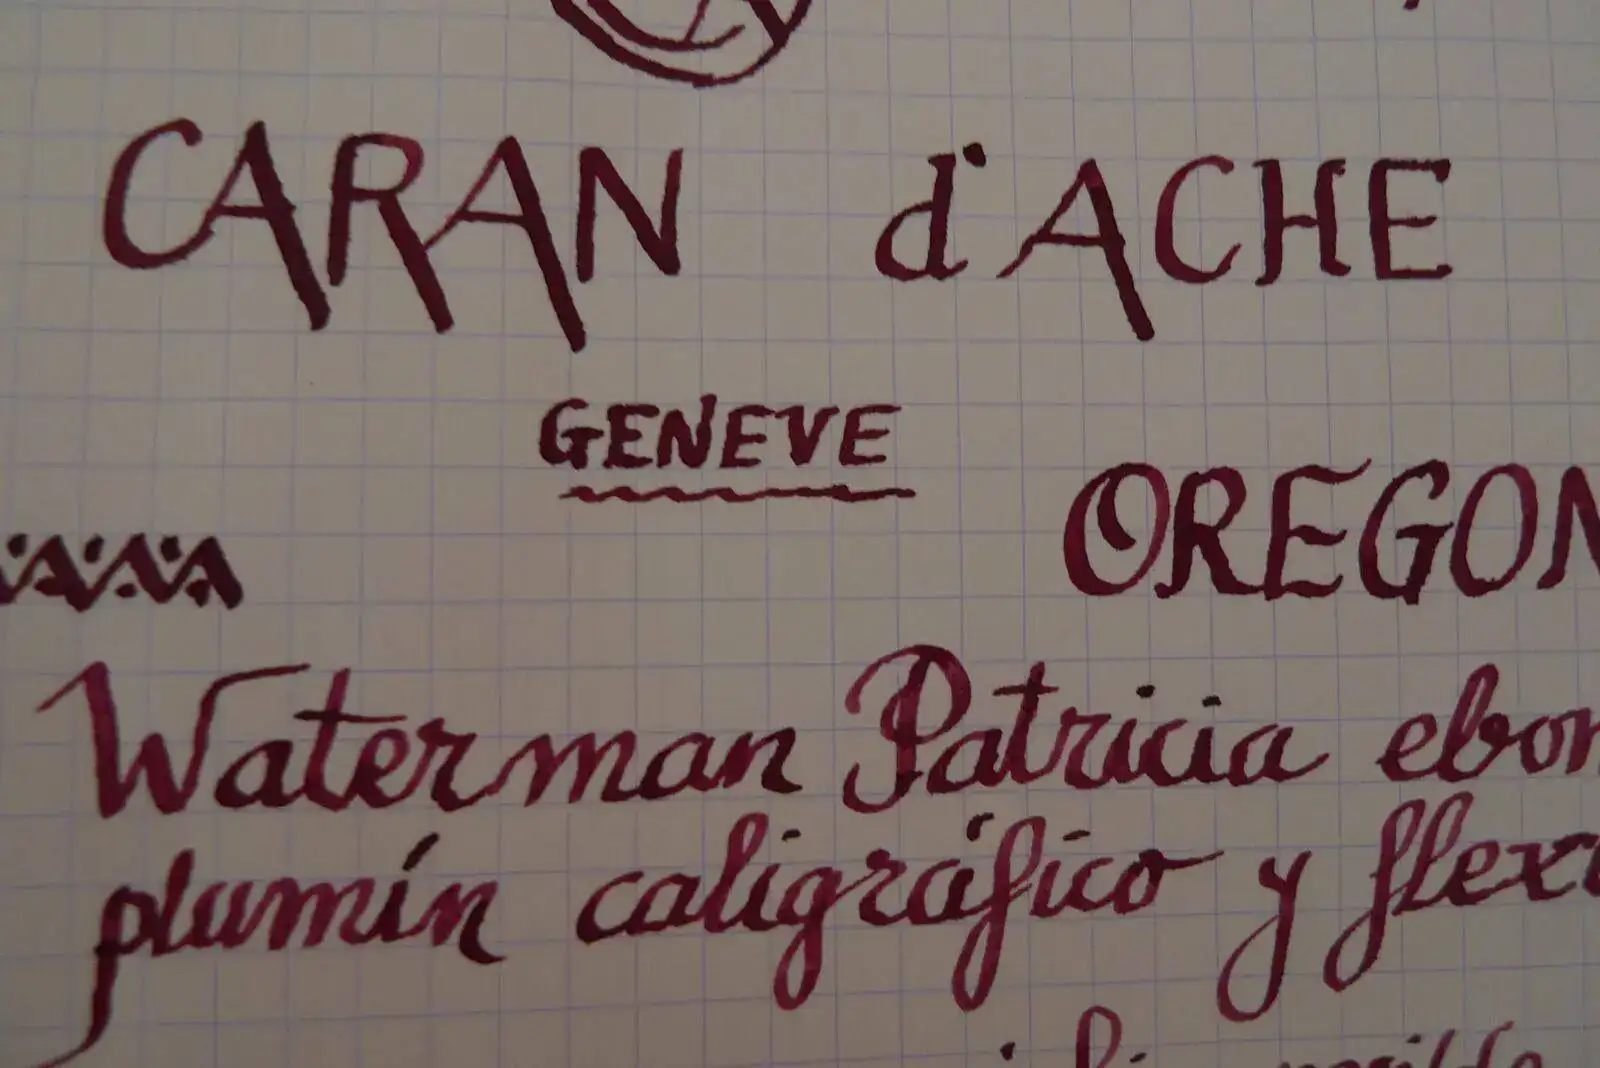 CARAN d'ACHE
GENEVE
OREGON
Waterman Patricia ebon
plumín caligráfico y flexi